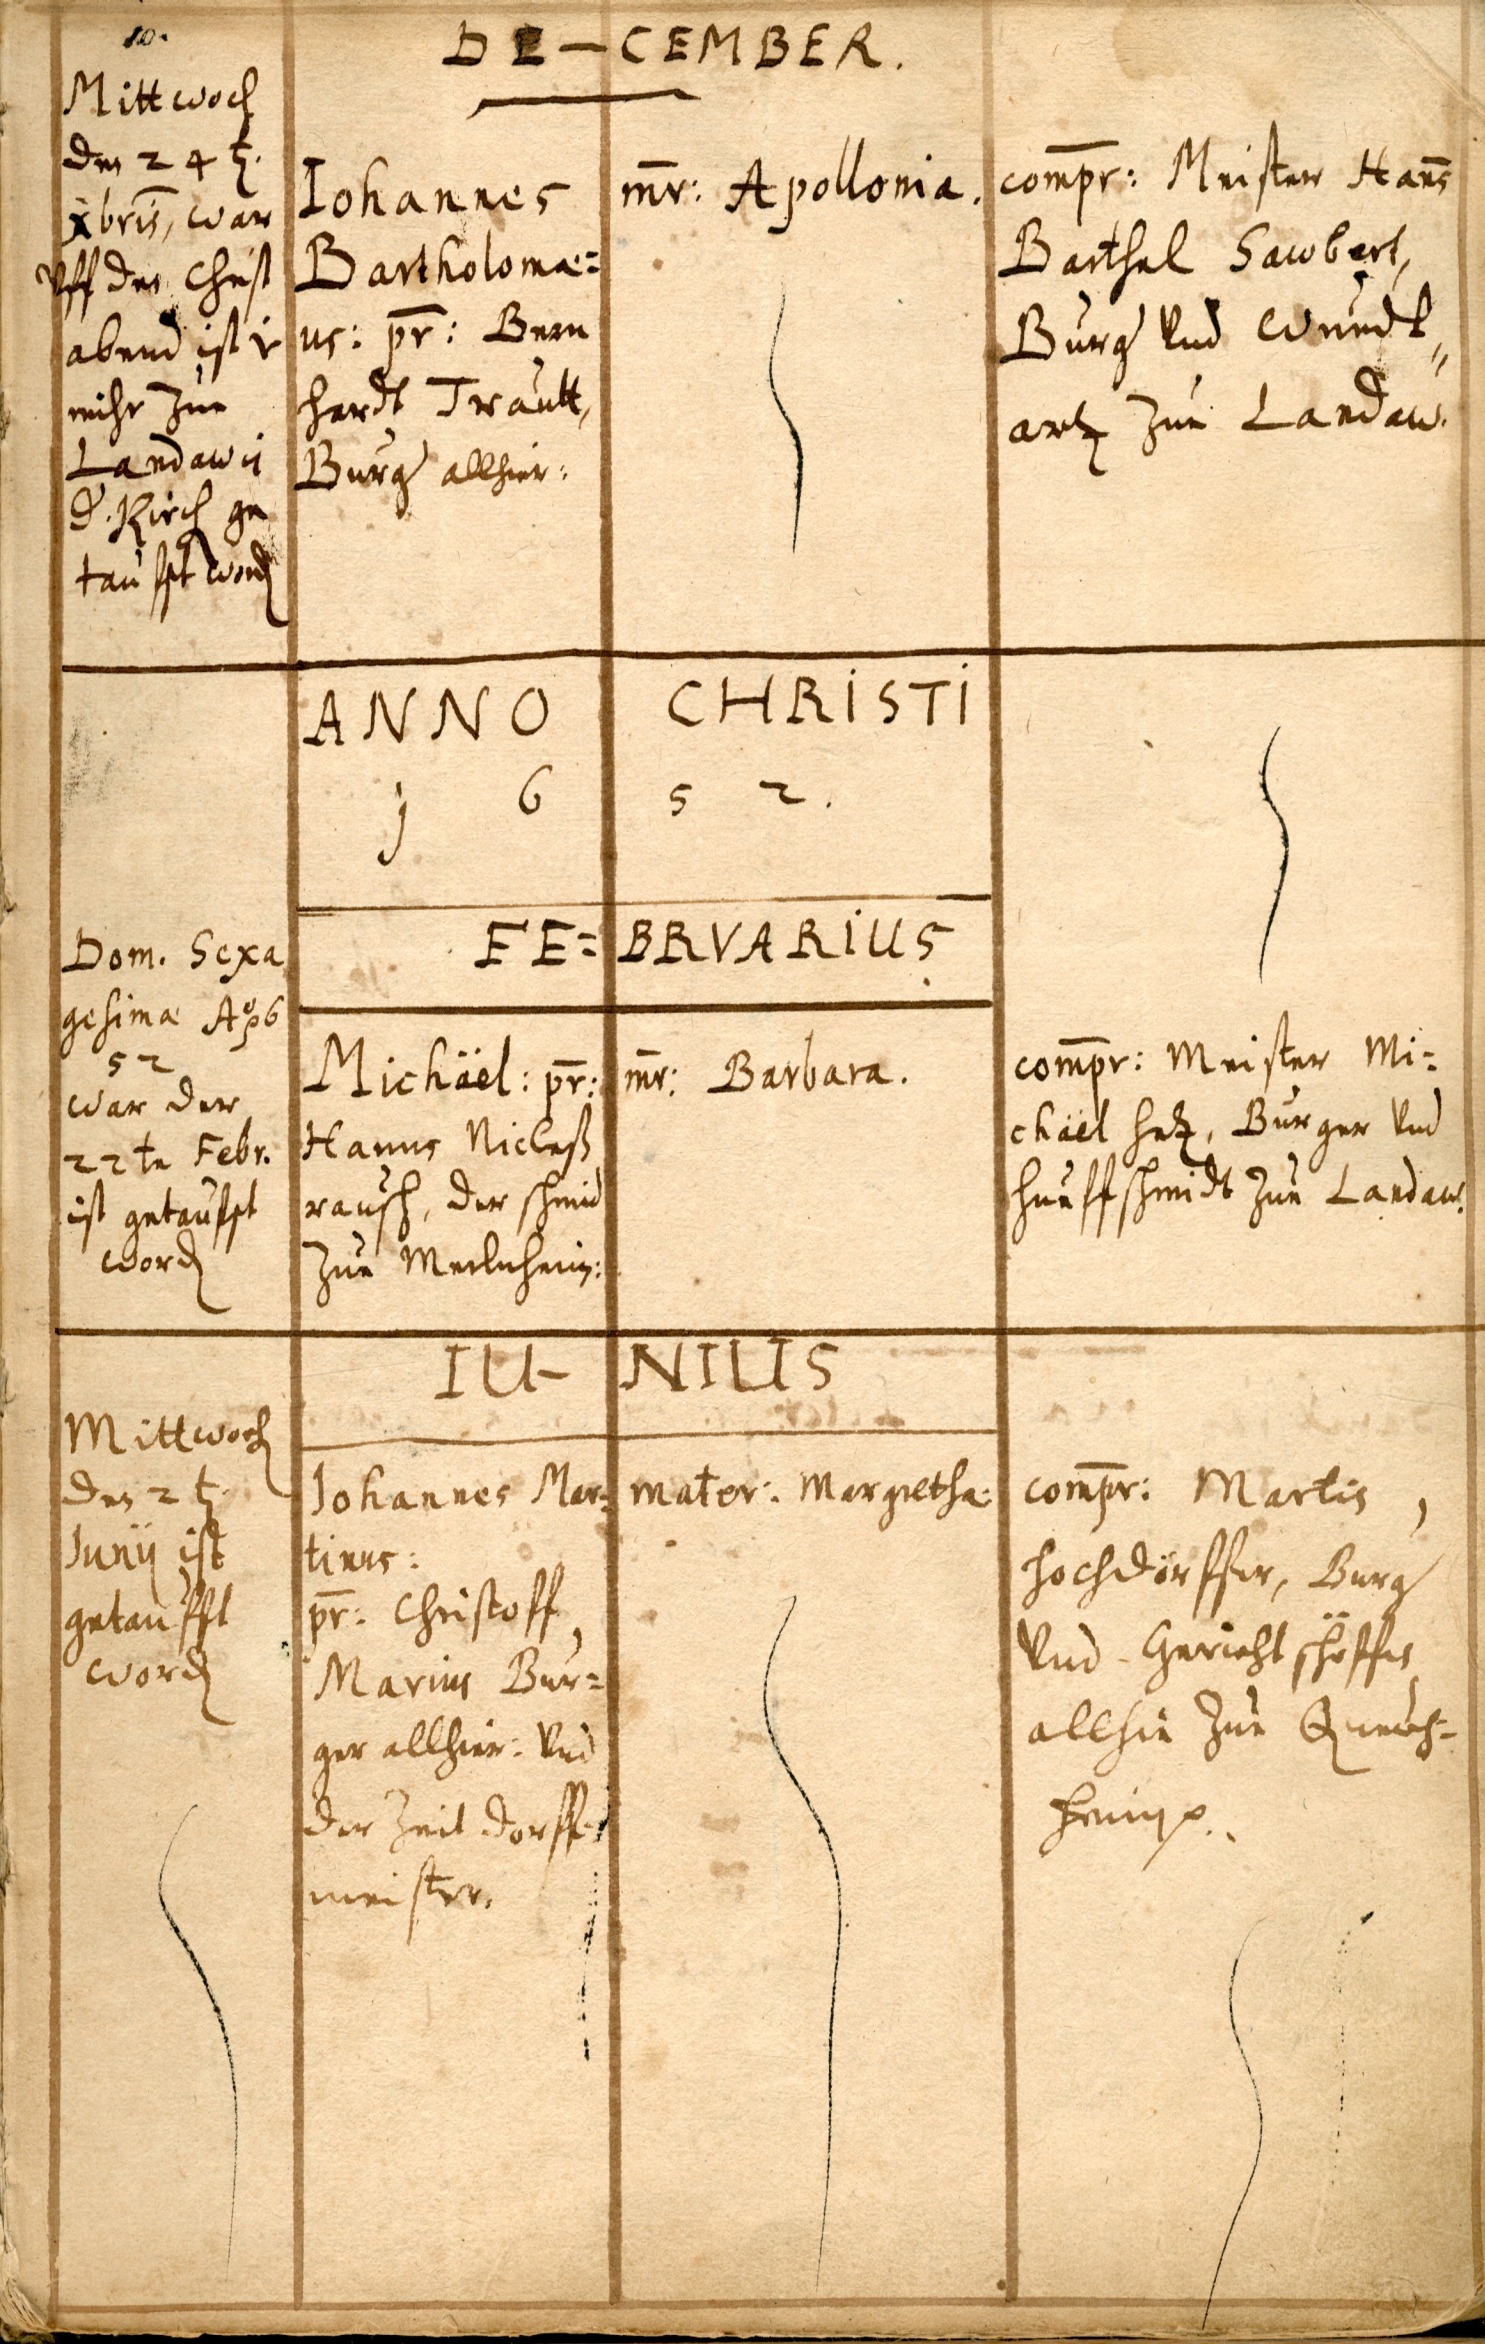 10.
DE-CEMBER.
Mittwoch
den 24 t.
xbris, war
Uff den Christ
abend ist v
mihr zue
Landaw ij
d. Kirch ge
taufft word
Iohannes
Bartholomæ=
us: pr: Bern
hardt Trautt,
Burg allhier:
mr: Apollonia.
compr: Meister Hans
Barthel
Burg und Wundt„
artz zue Landaw.
ANNO CHRISTI
j 6 5 2.
FE=BRVARIUS
Dom. Sexa
gesimæ Ao j6
52
war der
22te Febr.
ist getaufft
word
Michäel: pr:
Hanns Niclaß
rausch, der schmid
zue Merlnheim:
mr: Barbara.
compr: Meister Mi=
chäel hetz, Burger und
hueffschmidt zue Landaw.
IU-NIUS
Mittwoch
den 2 t.
Junij ist
getaufft
word
Johannes Mar=
tinus:
pr: Christoff
Marius Bur=
ger allhier: Und
der Zeit dorff=
meister.
mater: Margretha:
compr: Martin
hochdörffer, Burg
Und Gericht schöffen
allhie zue Queich=
heim.